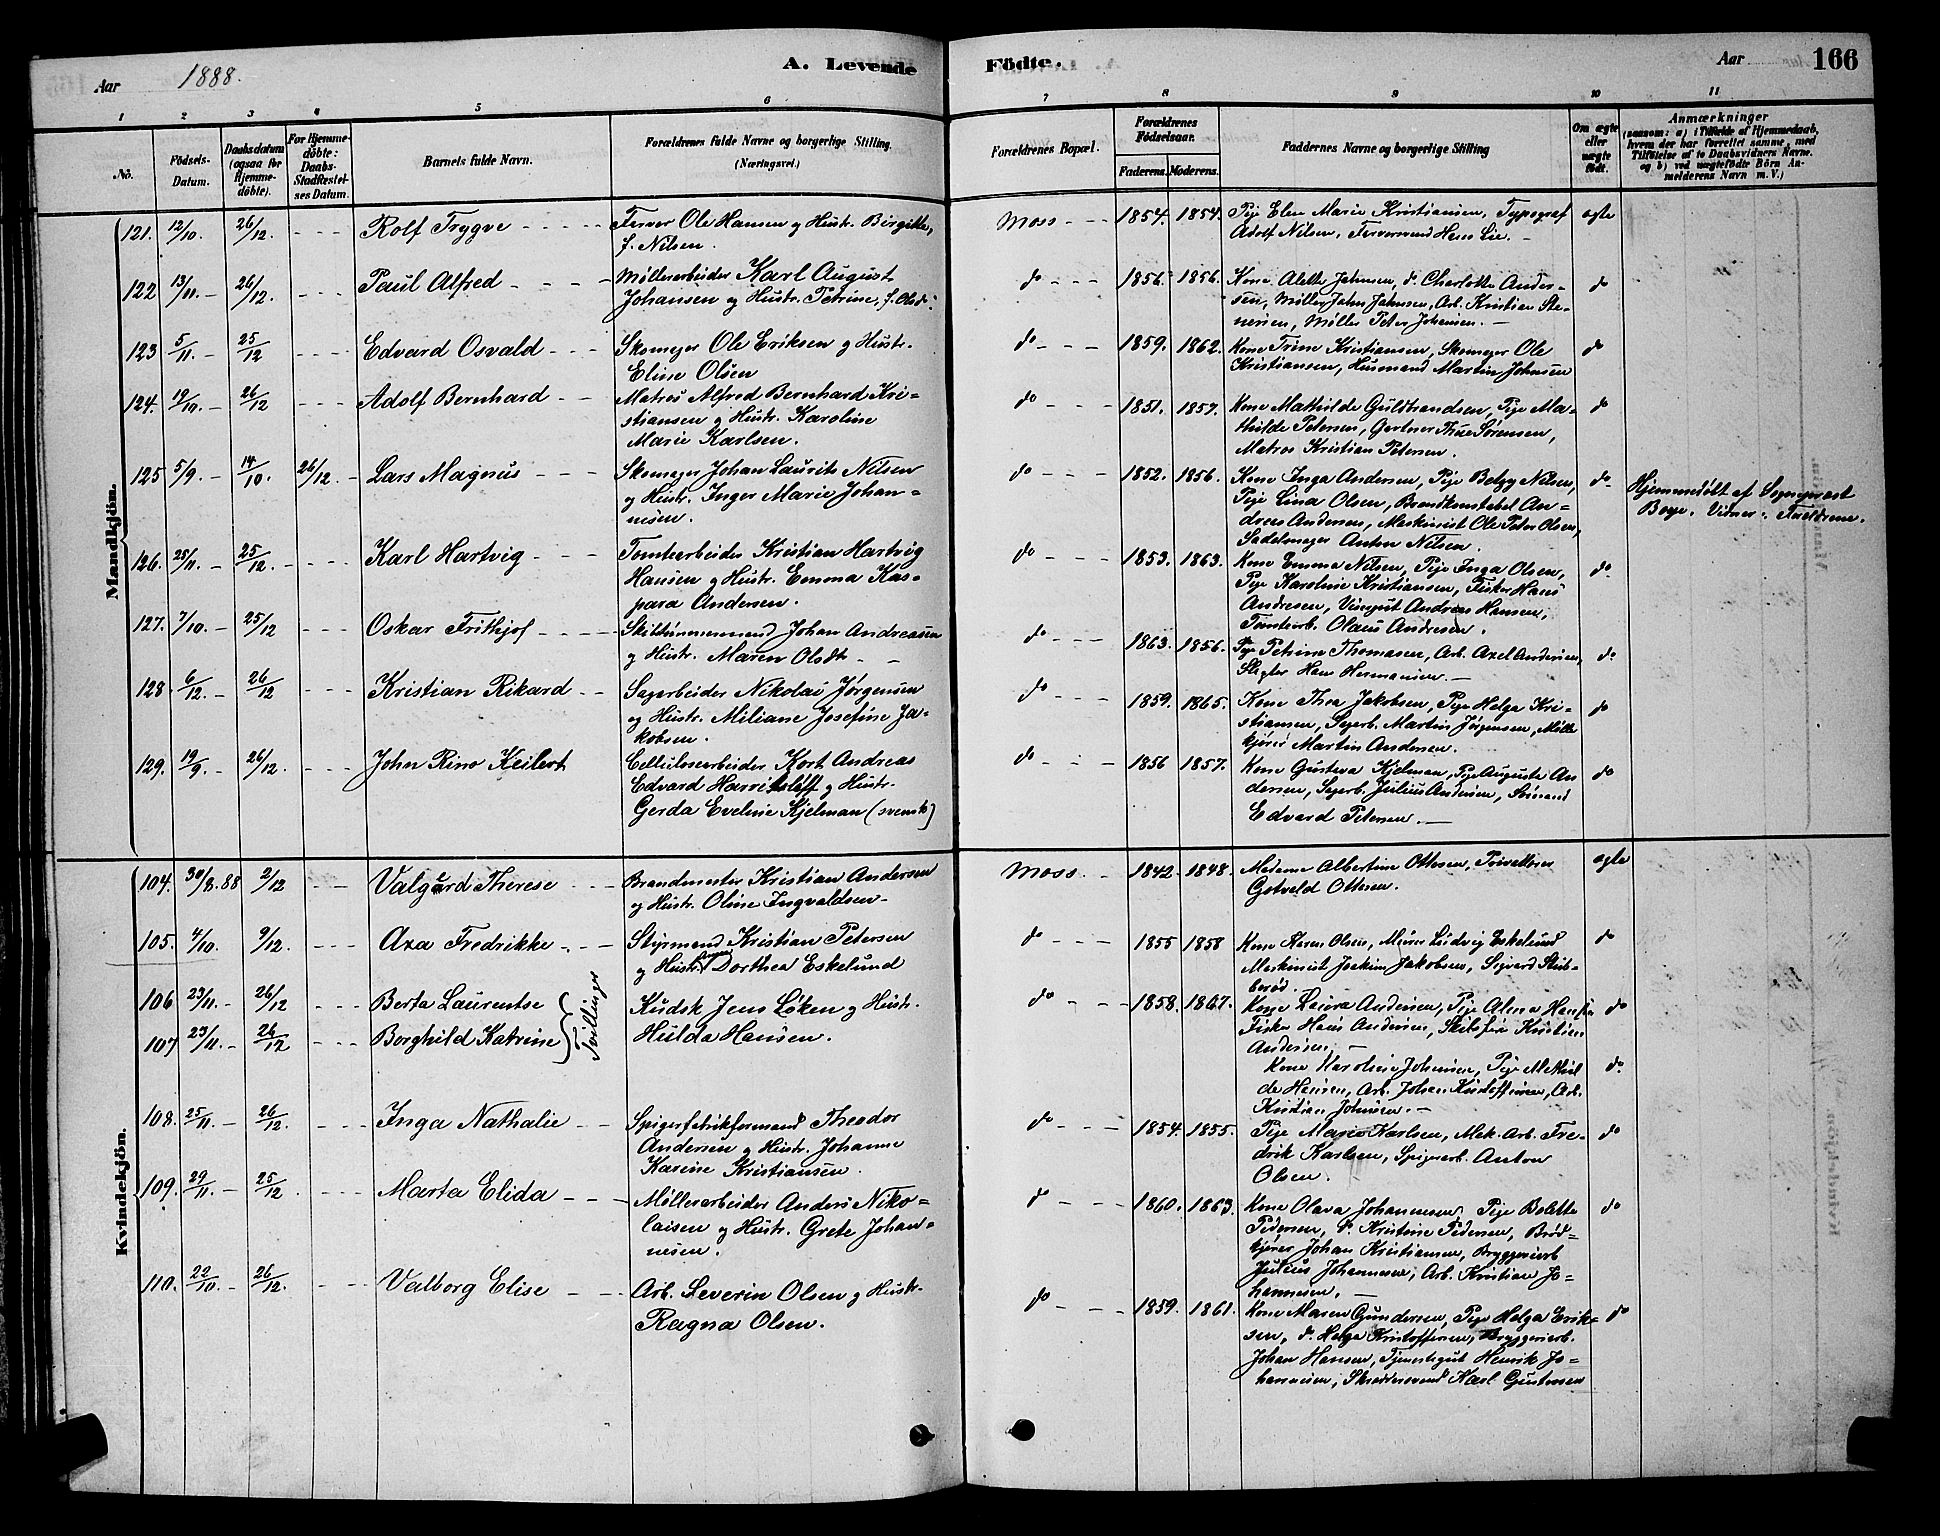 Aar 1888. A. Levende Födte. Aar 166
1 2 3 4 5 6 7 8 9 10 11
No.
Födsels-Datum.
Daabsdatum (ogsaa for Hjemmedöbte).
For Hjemmedöbte: Daabs-Stadfæstelses Datum.
Barnets fulde Navn.
Forældrenes fulde Navne og borgerlige Stilling. (Næringsvei.)
Forældrenes Bopæl.
Forældrenes Födselsaar.
Faderens. Moderens.
Faddernes Navne og borgerlige Stilling
Om ægte eller uægte födt.
Anmærkninger
(saasom: a) i Tilfælde af Hjemmedaab, hvem der har forrettet samme, med Tilföielse af to Daabsvidners Navne. og b) ved uægtefödte Börn Anmelderens Navn m. V.)
Mandkjön.
121. 12/10. 26/12. Rolf Trygve Farver Ole Hansen og Hustr. Birgitte, f. Nilsen. Moss 1854. 1854. Pige Elen Marie Kristiansen, Typograf Adolf Nilsen, Farversvend Hans Lie. ægte
122 13/11. 26/12. Paul Alfred Møllerarbeider Karl August Johansen og Hustr. Petrine, f. Olsdr. do 1856. 1856. Kone Alette Jahnsen, do Charlotte Andersen, Møller John Jahnsen, Arb. Kristian Stenersen, Møller Peter Johansen. do
123 5/11. 25/12 Edvard Osvald Skomager Ole Eriksen og Hustr. Eline Olsen do 1859. 1862. Kone Trine Kristiansen, Skomager Ole Kristiansen, Husmand Martin Johnsen do
124. 19/10. 26/12 Adolf Bernhard Matros Alfred Bernhard Kristiansen og Hustr. Karoline Marie Karlsen. do 1851. 1857. Kone Mathilde Guldbrandsen, Pige Mathilde Petersen, Gartner Thue Sørensen, Matros Kristian Petersen. do
125 5/9. 14/10. 26/12. Lars Magnus Skomager Johan Laurits Nilsen og Hustr. Inger Marie Johannesen. do 1852. 1856. Kone Inga Andersen, Pige Betzy Nilsen, Pige Lina Olsen, Brandkonstabel Andreas Andersen, Maskinist Ole Peter Olsen, Sadelmager Anton Nilsen. do. Hjemmedøbt af Sognepræst Boye. Vidner: Forældrene.
126. 25/11. 25/12. Karl Hartvig Tomtearbeider Kristian Hartvig Hansen og Hustr. Emma Kaspara Andersen. do 1853. 1863. Kone Emma Nilsen, Pige Inga Olsen, Pige Karoline Kristiansen, Fisker Hans Andresen, Andreas Hansen, Tomtearb. Olaus Andresen. do.
127. 7/10. 25/12 Oskar Frithjof Skibtømmermand Johan Andreassen og Hustr. Maren Olsdt. do 1863. 1856. Pige Petrine Thomasen, Arb. Axel Andersen, Slagter Hans Hermansen. do.
128. 6/12. 26/12 Kristian Rikard Sagarbeider Nikolai Jørgensen og Hustr. Miliane Josefine Jakobsen. do 1859. 1865. Kone Thea Jakobsen, Pige Helga Kristiansen, Sagarb. Martin Jørgensen, Møllekjører Martin Andersen. do
129. 19/9. 26/12. John Rino Keilert Cellulosearbeider Kort Andreas Edvard Harritsleff og Hustr. Gerda Eveline Kjelman (svensk) do 1856 1857. Kone Gustava Kjelman, Pige Augusta Andersen, Sagarb. Julius Andersen, Sømand Edvard Petersen. do
Kvindekjön.
104. 30/8.88 2/12 Valgerd Therese Brandmester Kristian Andersen og Hustr. Oline Ingvaldsen. Moss 1842. 1848. Madame Albertine Ottesen, Gotvald Ottesen. ægte
105. 4/10. 9/12. Axa Fredrikke Styrmand Kristian Petersen og Hustr. Dorthea Eskelund do 1855 1858 Kone Karen Olsen, Murer Ludvig Eskelund Maskinist Joakim Jakobsen, Sigvard do
106 23/11. 26/12 Berta Laurentse Kudsk Jens Løken og Hustr. Hulda Hansen. do 1858. 1867. Kone Laura Andersen, Pige Alma Hansen Fisker Hans Andersen, Kristian Andersen. do
107 23/11. 26/12 Borghild Katrine Tvillinger Kone Karoline Johansen, Pige Mathilde Hansen, Arb. Johan Kristoffersen, Arb. Kristian Johnsen. do.
108. 25/11. 26/12. Inga Nathalie Spigerfabrikformand Theodor Andersen og Hustr. Johanne Karine Kristiansen. do 1854. 1855. Pige Marie Karlsen, Mek. Arb. Fredrik Karlsen, Spigerarb. Anton Olsen. do
109. 29/11. 25/12 Marta Elida Møllerarbeider Anders Nikolaisen og Hustr. Grete Johannesen. do 1860. 1863. Kone Olava Johannesen, Pige Bolette Pedersen, do Kristine Pedersen, Brødkjører Johan Kristiansen, Bryggeriarb Julius Johannesen, Arb. Kristian Johannesen. do
110. 22/10. 26/12. Valborg Elise Arb. Severin Olsen og Hustr. Ragna Olsen. do 1859. 1861. Kone Maren Gundersen, Pige Helga Eriksen, do Helga Kristoffersen, Bryggeriarb. Johan Hansen, Tjenestegut Henrik Johannesen, Skræddersvend Karl Gustavsen do